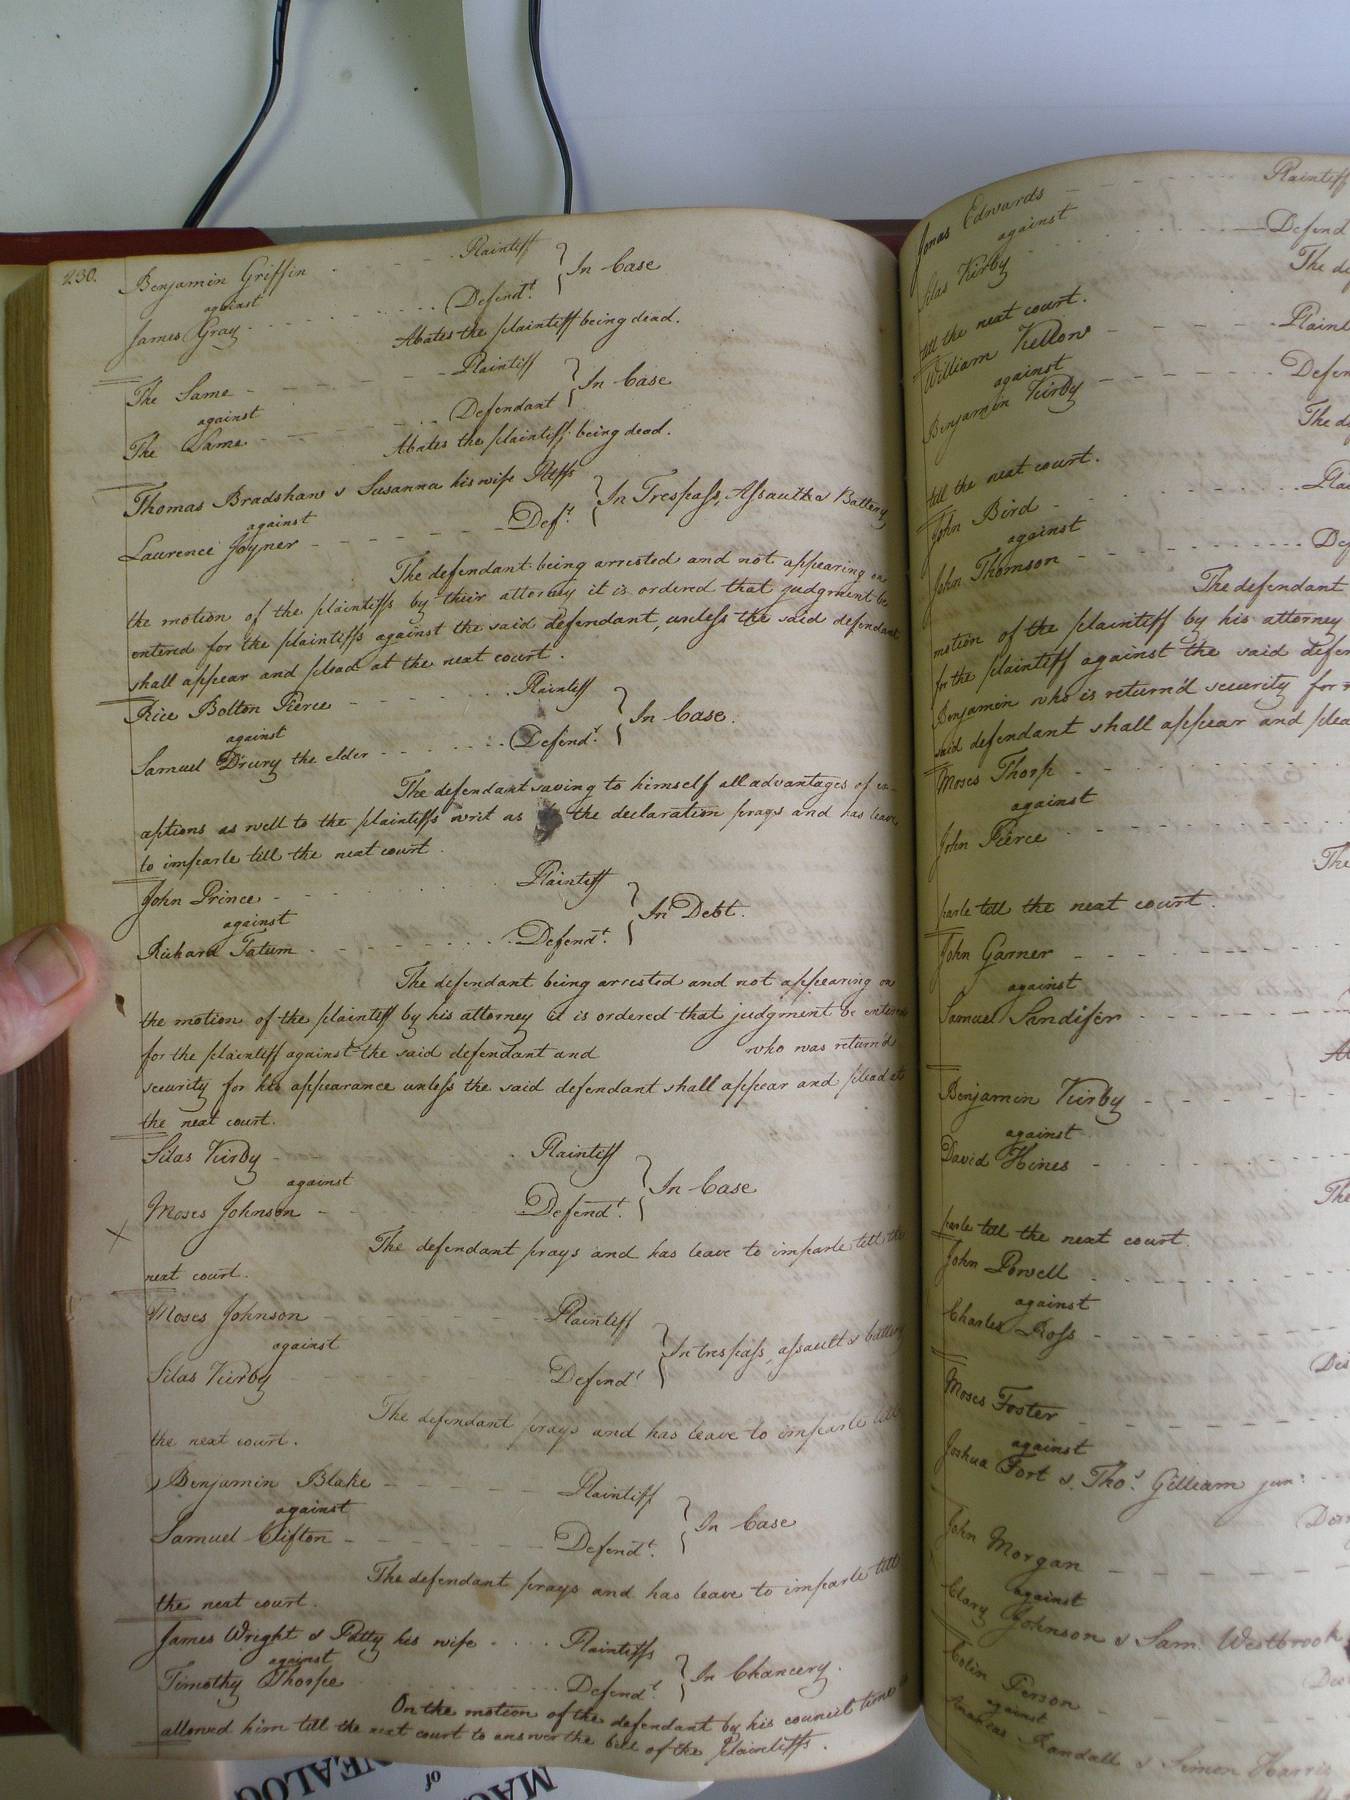 230.
Benjamin Griffin - - - Plaintiff
against } In Case
James Gray - - - Defendt.
Abates the plaintiff being dead.
The Same - - - Plaintiff
against } In Case
The Same - - - Defendant
Abates the plaintiff being dead.
Thomas Bradshaw & Susanna his wife Pltffs
against } In Trespass, Assault & Battery
Laurence Joyner - - - Deft.
The defendant being arrested and not appearing on
the motion of the plaintiffs by their attorney it is ordered that judgment be
entered for the plaintiffs against the said defendant, unless the said defendant
shall appear and plead at the next court.
Rice Bolton Pierce - - - Plaintiff
against } In Case.
Samuel Drury the elder - - - Defendt.
The defendant saving to himself all advantages of ex-
aptions as well to the plaintiffs writ as the declaration prays and has leave
to imparle till the next court.
John Prince - - - Plaintiff
against } In Debt.
Richard Tatum - - - Defendt.
The defendant being arrested and not appearing on
the motion of the plaintiff by his attorney it is ordered that judgment be entered
for the plaintiff against the said defendant and who was return'd
security for his appearance unless the said defendant shall appear and plead at
the next court.
Silas Kirby - Plaintiff
against } In Case
Moses Johnson - - Defendt.
X
The defendant prays and has leave to imparle till the
next court.
Moses Johnson - - Plaintiff
against } In trespass, assault & battery
Silas Kirby - - Defendt
The defendant prays and has leave to imparle till
the next court.
Benjamin Blake - - - Plaintiff
against } In Case
Samuel Clifton - - - Defendt.
The defendant prays and has leave to imparle till
the next court.
James Wright & Patty his wife - - - Plaintiffs
against } In Chancery.
Timothy Thorpe - - - Defendt.
On the motion of the defendant by his council time is
allowed him till the next court to answer the bill of the Plaintiffs.
Jonas Edwards - - - Plaintiff
against
Silas Kirby - - - Defend
The de
till the next court.
William Vellow - - - Plaint
against
Benjamin Kirby - - - Defen
The de
till the next court.
John Bird - - - Plai
against
John Thomson - - - De
The defendant
motion of the plaintiff by his attorney
for the plaintiff against the said defen
Benjamin who is return'd security for
said defendant shall appear and plea
Moses Thorp - - -
against
John Pierce - - -
The
parle till the next court.
John Garner - - -
against
Samuel Sandifer - - -
Ab
Benjamin Kirby - - -
against
David Hines - - -
The
parle till the next court.
John Powell - - -
against
Charles Ross - - -
Dis
Moses Foster - - -
against
Joshua Fort & Thos. Gilliam jun:
John Morgan - - -
against
Clary Johnson & Sam. Westbrook
Colin Person - - -
against
Randall & Simon Harris